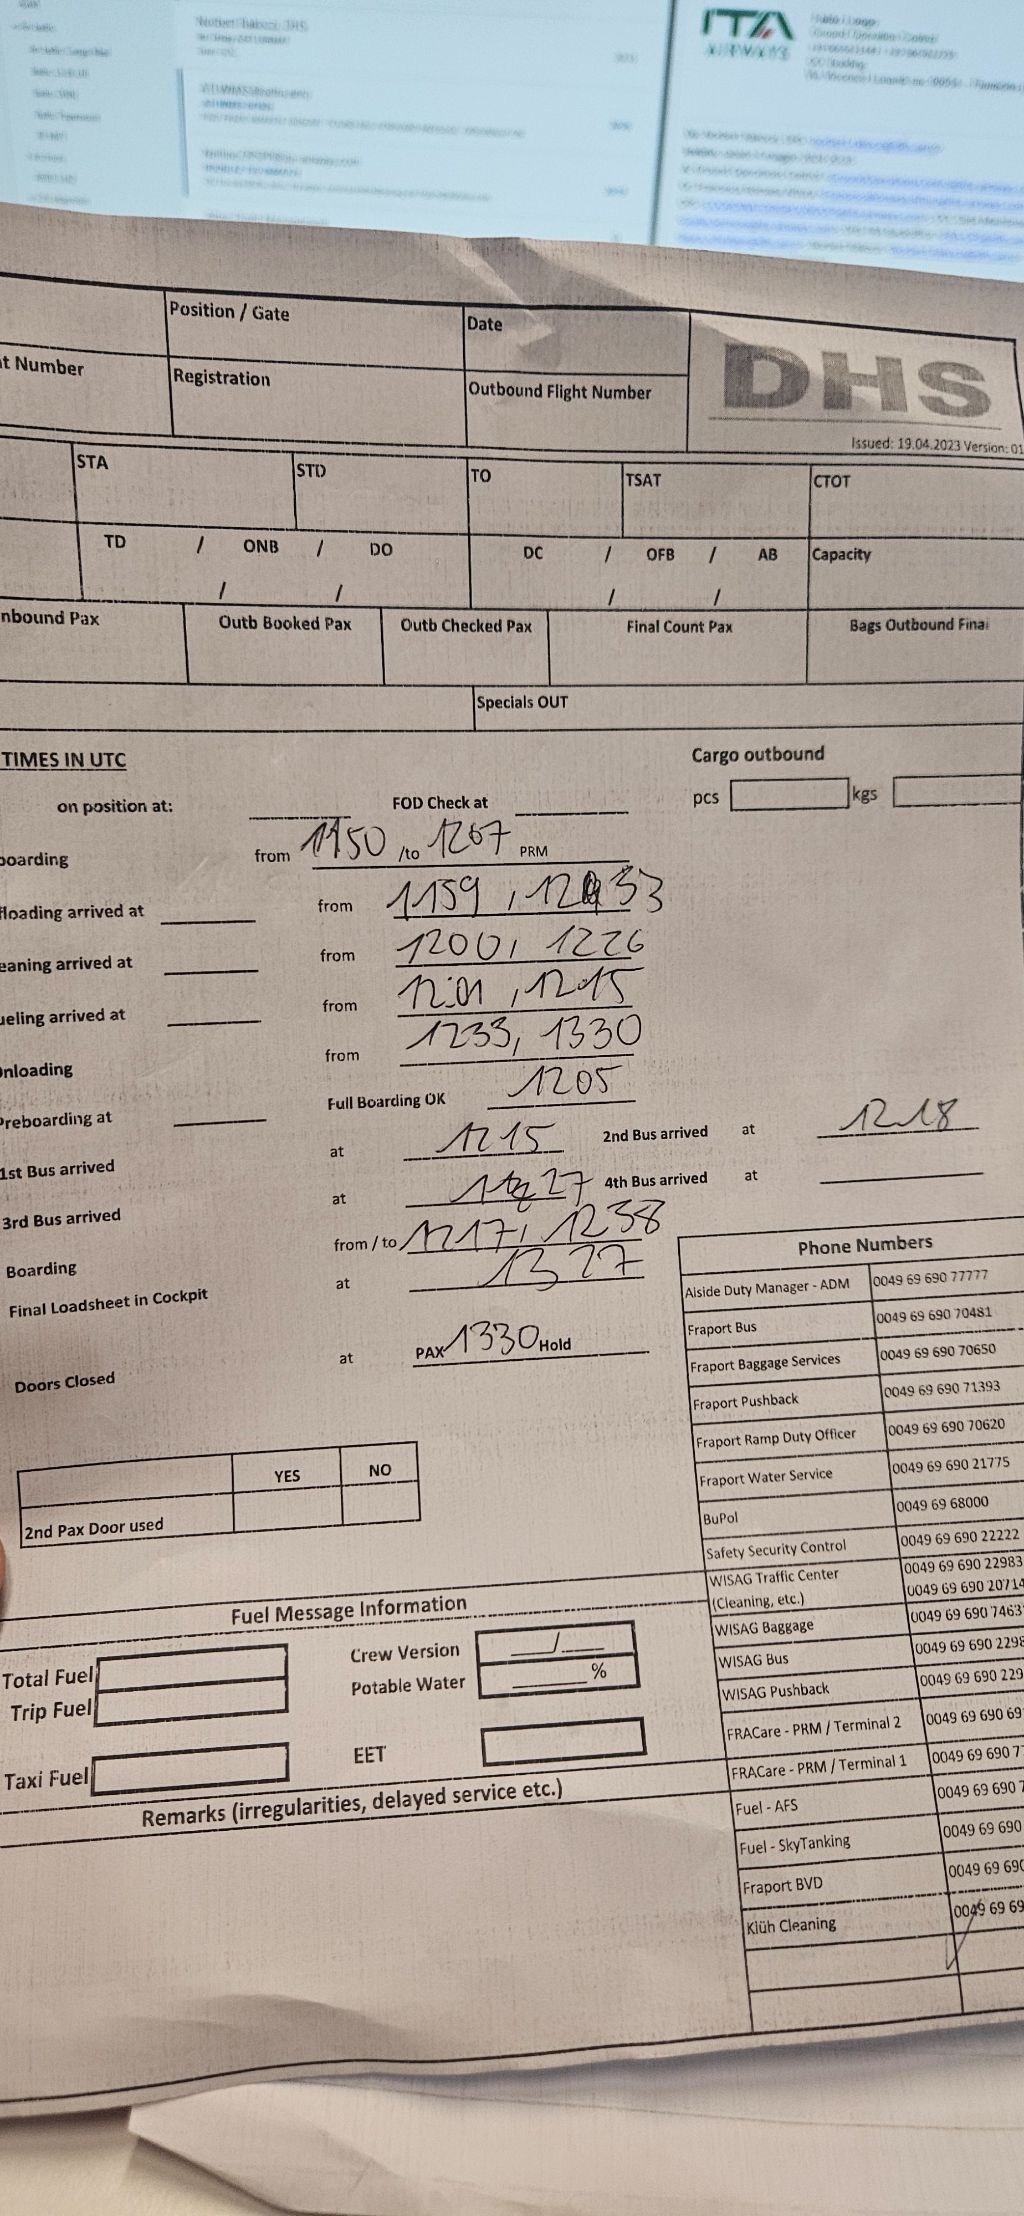 ITA
AIRWAYS
Position / Gate
Date
DHS
t Number
Registration
Outbound Flight Number
Issued: 19.04.2023 Version: 01
STA
STD
TO
TSAT
CTOT
TD / ONB / DO
DC / OFB / AB
Capacity
/ /
/ /
nbound Pax
Outb Booked Pax
Outb Checked Pax
Final Count Pax
Bags Outbound Final
Specials OUT
TIMES IN UTC
Cargo outbound
on position at:
FOD Check at
pcs
kgs
boarding from 1150 /to 1207 PRM
floading arrived at from 1159, 1233
eaning arrived at from 1200, 1226
ueling arrived at from 12:01, 1215
Onloading from 1233, 1330
Preboarding at Full Boarding OK 1205
1st Bus arrived at 1215 2nd Bus arrived at 1218
3rd Bus arrived at 1227 4th Bus arrived at
Boarding from / to 1217, 1238
Final Loadsheet in Cockpit at 1327
Doors Closed at PAX 1330 Hold
Phone Numbers
Aiside Duty Manager - ADM 0049 69 690 77777
Fraport Bus 0049 69 690 70481
Fraport Baggage Services 0049 69 690 70650
Fraport Pushback 0049 69 690 71393
Fraport Ramp Duty Officer 0049 69 690 70620
Fraport Water Service 0049 69 690 21775
BuPol 0049 69 68000
Safety Security Control 0049 69 690 22222
WISAG Traffic Center 0049 69 690 22983
(Cleaning, etc.) 0049 69 690 20714
WISAG Baggage 0049 69 690 7463
WISAG Bus 0049 69 690 2298
WISAG Pushback 0049 69 690 229
FRACare - PRM / Terminal 2 0049 69 690 69
FRACare - PRM / Terminal 1 0049 69 690 7
Fuel - AFS 0049 69 690 7
Fuel - SkyTanking 0049 69 690
Fraport BVD 0049 69 690
Klüh Cleaning 0049 69 69
YES NO
2nd Pax Door used
Fuel Message Information
Total Fuel
Crew Version /
Trip Fuel
Potable Water %
Taxi Fuel
EET
Remarks (irregularities, delayed service etc.)